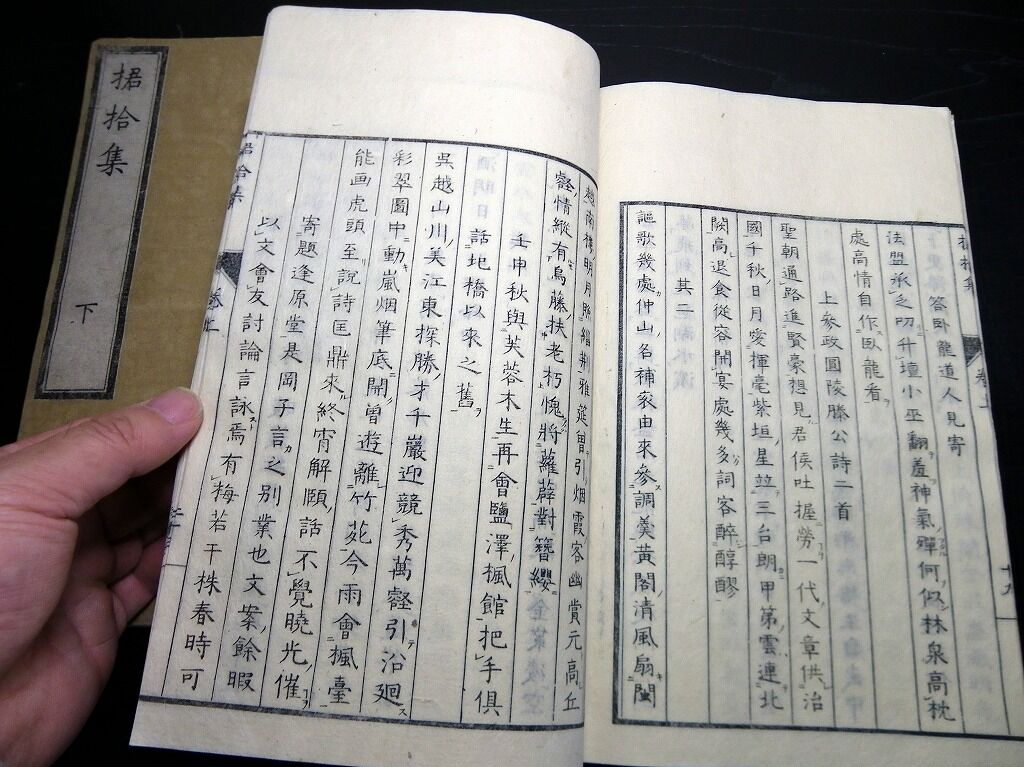 捃拾集
下
答臥龍道人見寄
法盟承之叨升壇小巫翻羞神氣殫何似林泉高枕
處高情自作臥龍看
上參政圓陵藤公詩二首
聖朝通路進賢豪想見君侯吐握勞一代文章供治
國千秋日月愛揮毫紫垣星竝三台朗甲第雲連北
闕高退食從容開宴處幾多詞客醉醇醪
其二
謳歌幾處仲山名補袞由來參調羹黃閣清風扇閩
越南樓明月照 荊雅筵曾引烟霞客幽賞元高丘
壑情縱有烏藤扶老朽愧將蘿薜對簪纓
壬申秋與芙蓉木生再會鹽澤楓館把手俱
話圯橋以來之舊
吳越山川美江東探勝才千巖迎競秀萬壑引沿廻
彩翠圖中動嵐烟筆底開曾遊離竹苑今雨會楓臺
能画虎頭至說詩匡鼎來終宵解頤話不覺曉光催
寄題逢原堂是岡子言之別業也文案餘暇
以文會友討論言詠焉有梅若干株春時可
捃拾集
卷上